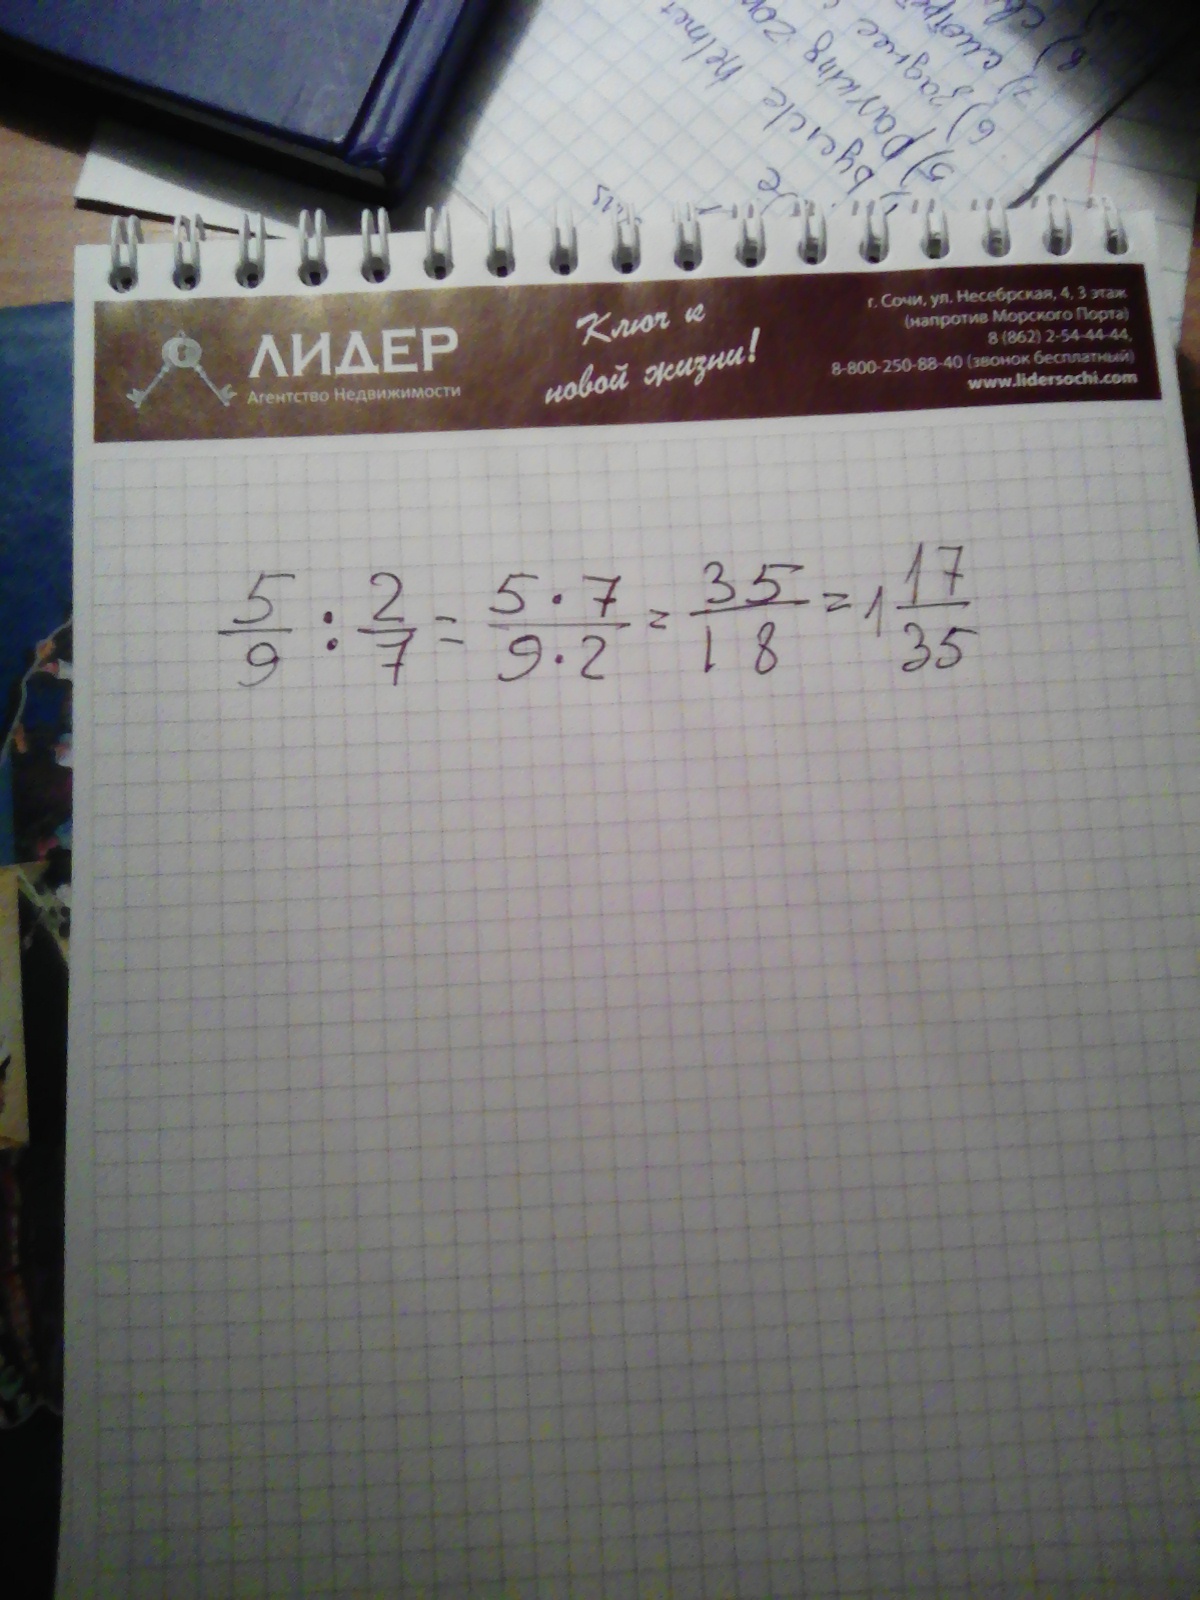 helmet
bycicle
5) parking zon
6) заднее
7) смотрей
8)
ЛИДЕР
Агентство Недвижимости
Ключ к
новой жизни!
г. Сочи, ул. Несебрская, 4, 3 этаж
(напротив Морского Порта)
8 (862) 2-54-44-44,
8-800-250-88-40 (звонок бесплатный)
www.lidersochi.com
5/9 : 2/7 = 5·7/9·2 = 35/18 = 1 17/35